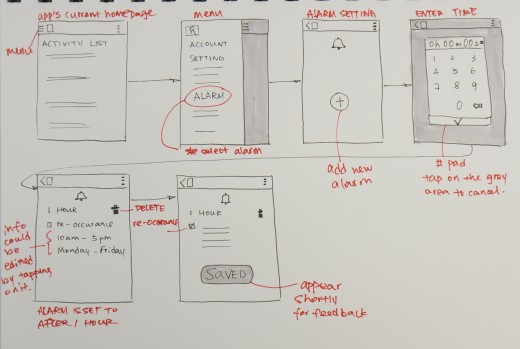 app's current homepage
menu
ACTIVITY LIST
menu
ACCOUNT
SETTING
ALARM
select alarm
ALARM SETTING
+
add new
alarm
ENTER TIME
0h 00m 00s
1 2 3
4 5 6
7 8 9
0
# pad
tap on the grey
area to cancel.
1 HOUR
re-occurance
10am - 5pm
Monday - Friday
DELETE
info
could
be
edited
by tapping
on it.
ALARM IS SET TO
AFTER 1 HOUR
1 HOUR
re-occurance
SAVED
appear
shortly
for feedback